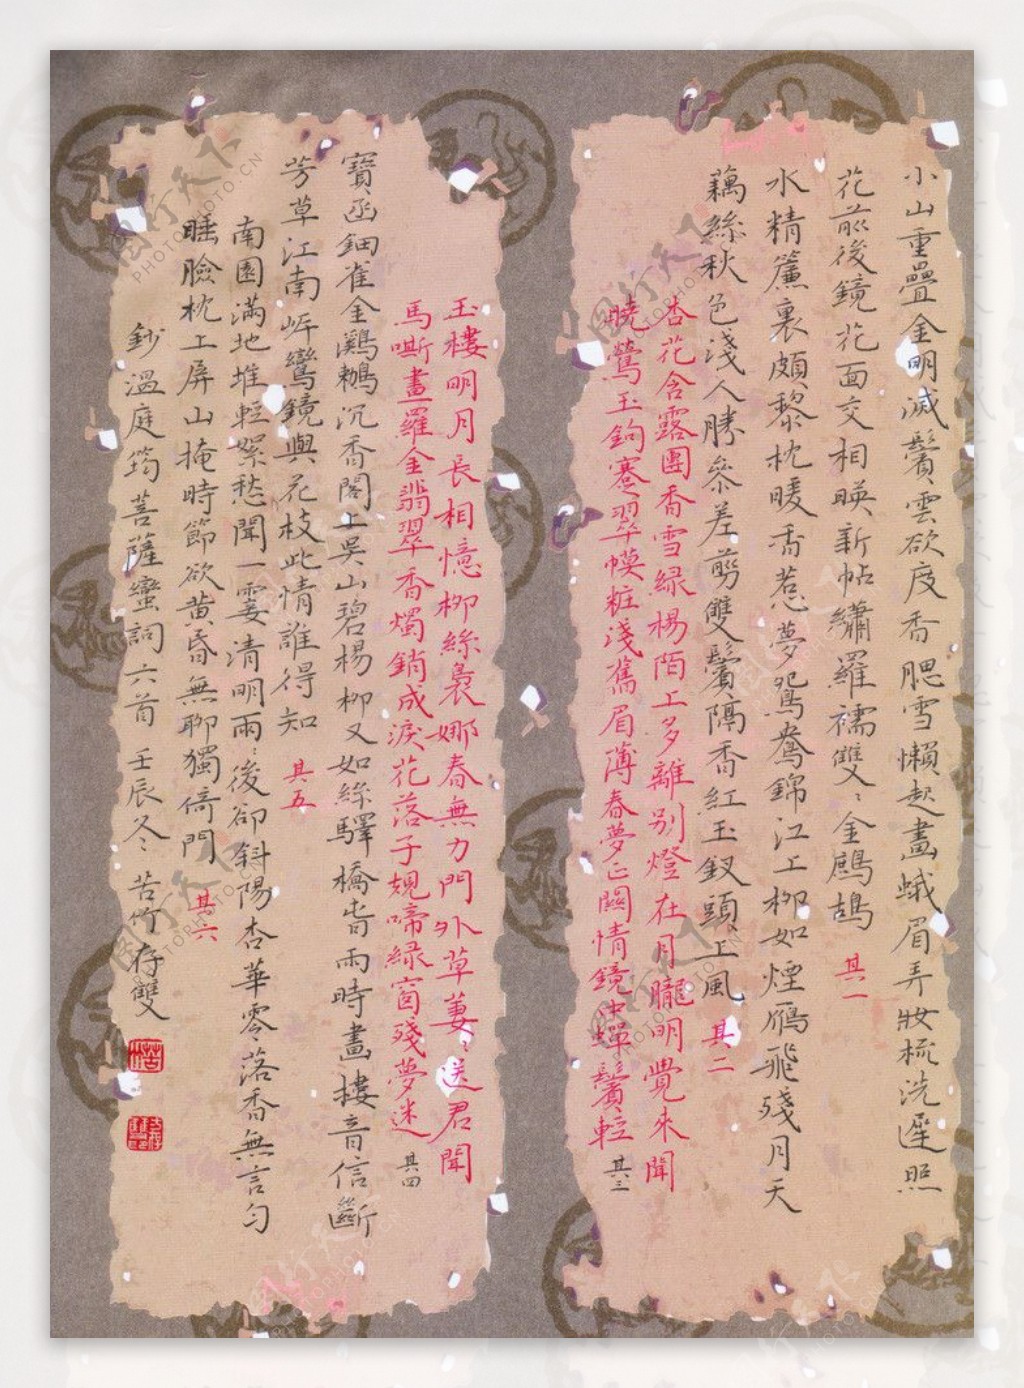 小山重疊金明滅鬢雲欲度香腮雪懶起畫蛾眉弄妝梳洗遲照
花前後鏡花面交相暎新帖繡羅襦雙〻金鷓鴣 其一
水精簾裏頗黎枕暖香惹夢鴛鴦錦江上柳如煙鴈飛殘月天
藕絲秋色淺人勝參差剪雙鬢隔香紅玉釵頭上風 其二
杏花含露團香雪綠楊陌上多離別燈在月朧明覺來聞
曉鶯玉鉤褰翠幙粧淺舊眉薄春夢正關情鏡中蟬鬢輕 其三
玉樓明月長相憶柳絲裊娜春無力門外草萋〻送君聞
馬嘶畫羅金翡翠香燭銷成淚花落子規啼綠窗殘夢迷 其四
寶函鈿雀金鸂鶒沉香閣上吳山碧楊柳又如絲驛橋春雨時畫樓音信斷
芳草江南岸鸞鏡與花枝此情誰得知 其五
南園滿地堆輕絮愁聞一霎清明雨〻後卻斜陽杏華零落香無言勻
睡臉枕上屏山掩時節欲黃昏無聊獨倚門 其六
鈔溫庭筠菩薩蠻詞六首 壬辰冬 苦竹存雙